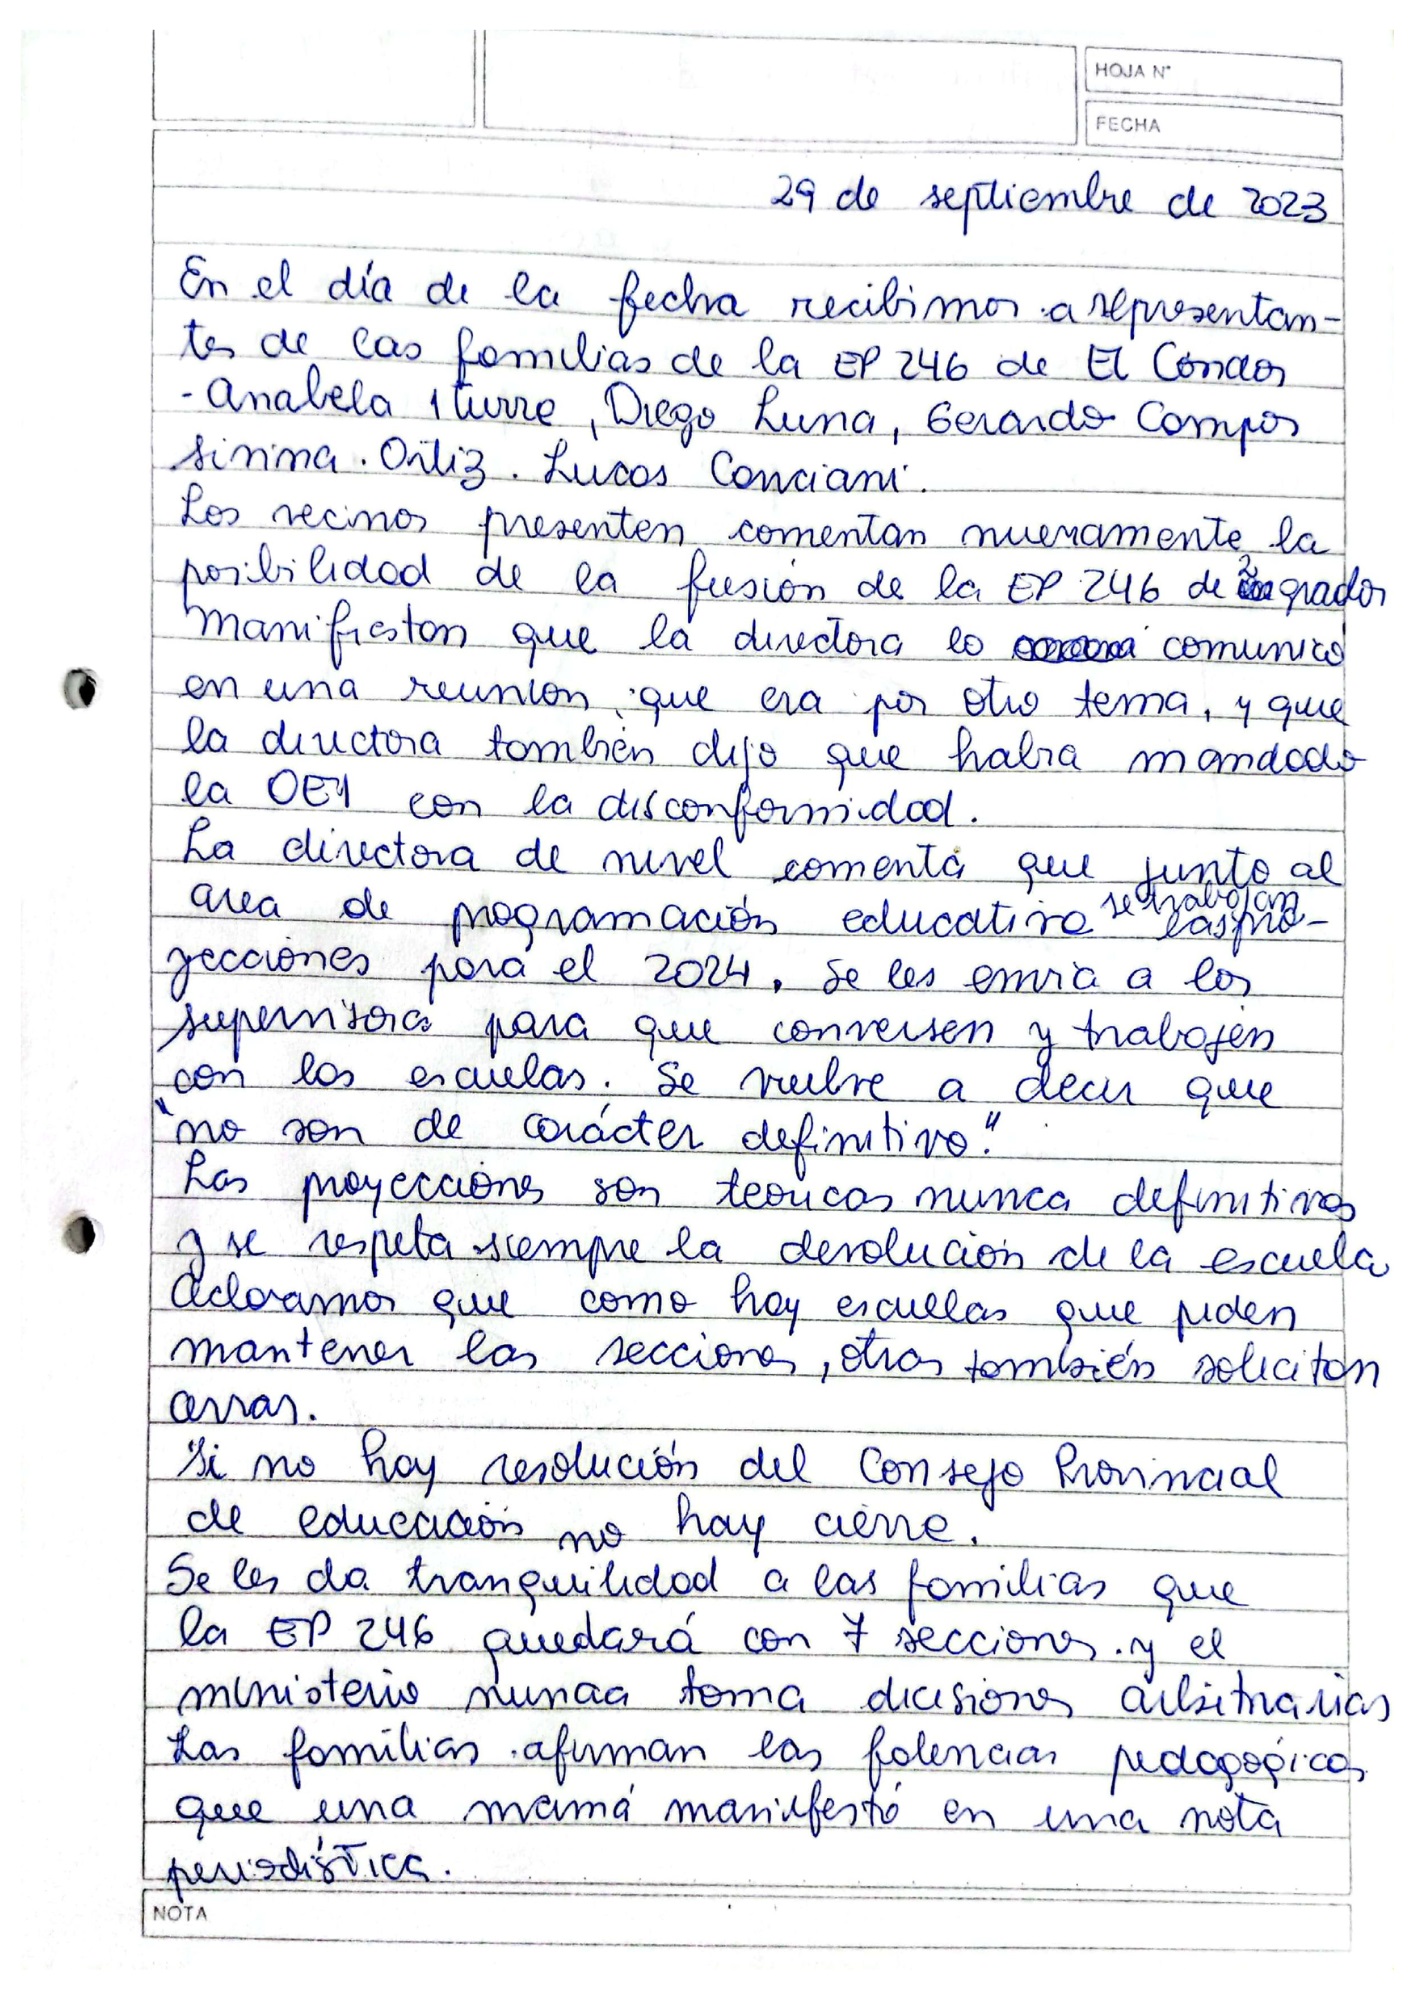 HOJA N°
FECHA
29 de septiembre de 2023
En el día de la fecha recibimos a representan-
tes de las familias de la EP 246 de El Cóndor
- Anabela Iturre, Diego Luna, Gerardo Campos
Ortiz. Lucas Conciani.
Los vecinos presenten comentan nuevamente la
posibilidad de la fusión de la EP 246 de 2 grados
Manifiestan que la directora lo comunicó
en una reunión que era por otro tema, y que
la directora también dijo que había mandado
la OE1 con la disconformidad.
La directora de nivel comenta que junto al
area de programación educativa se trabajan las pro-
yecciones para el 2024. Se les envía a los
supervisoras para que conversen y trabajen
con las escuelas. Se vuelve a decir que
"no son de carácter definitivo."
Las proyecciones son teoricas nunca definitivas
y se respeta siempre la devolución de la escuela
Aclaramos que como hay escuelas que piden
mantener las secciones, otras también solicitan
cerrar.
Si no hay resolución del Consejo Provincial
de educación no hay cierre.
Se les da tranquilidad a las familias que
la EP 246 quedará con 7 secciones y el
ministerio nunca toma decisiones arbitrarias
Las familias afirman las falencias pedagógicas
que una mamá manifestó en una nota
periodística.
NOTA